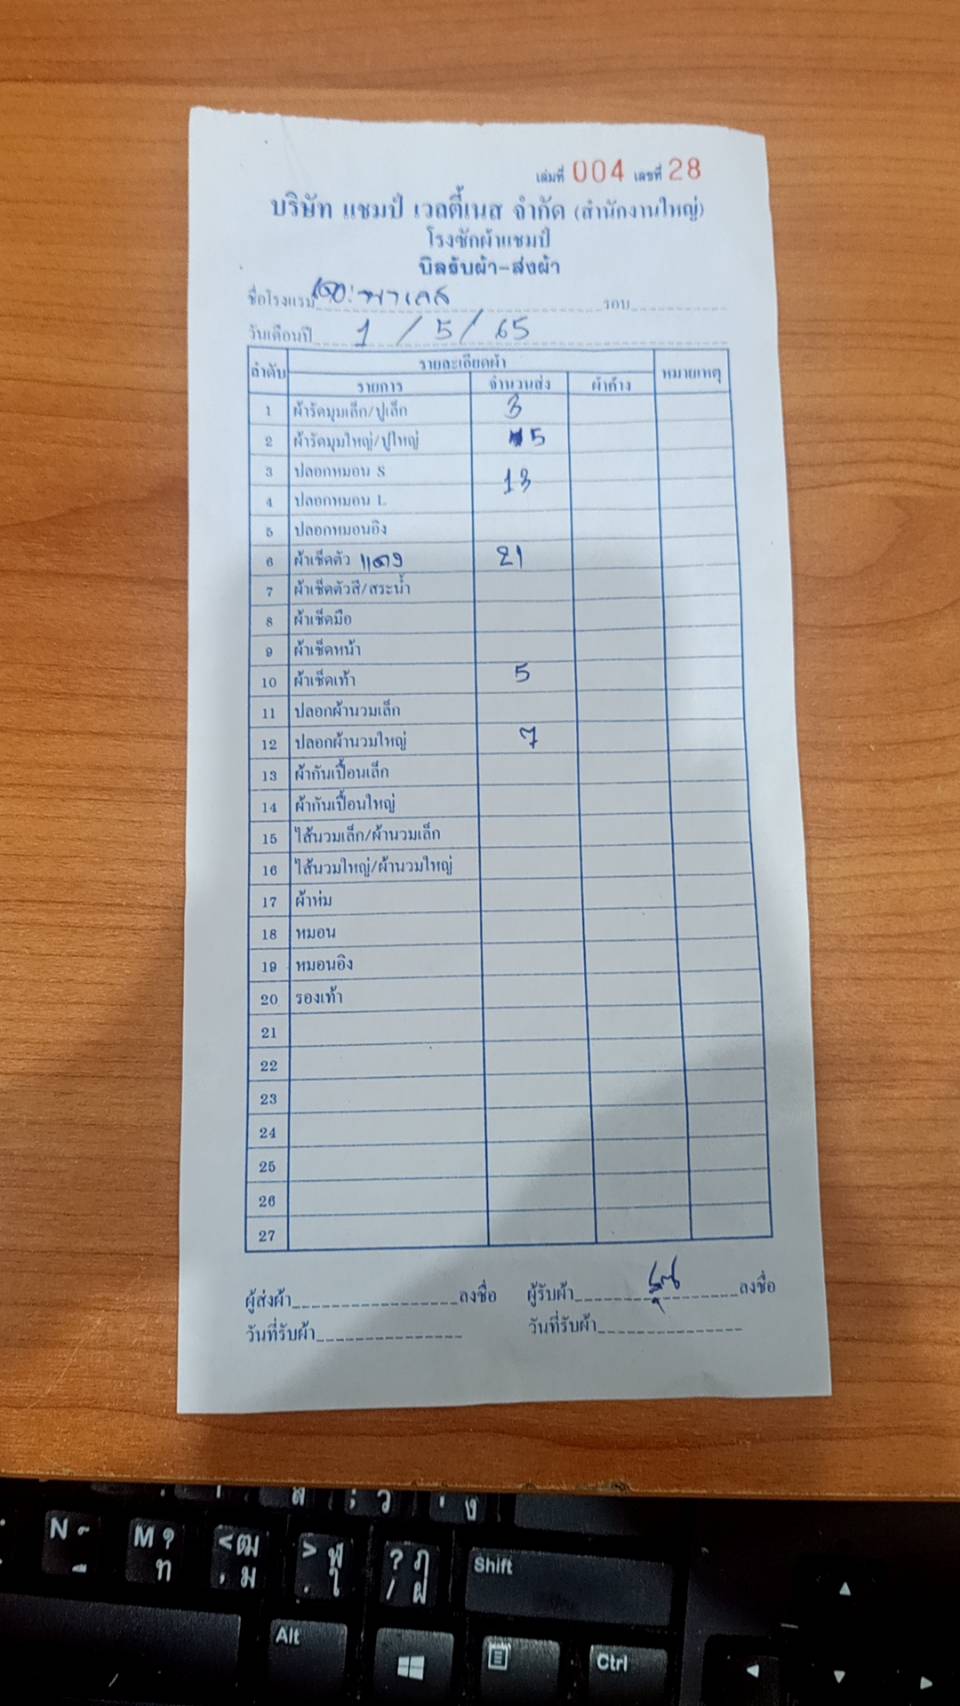 เล่มที่ 004 เลขที่ 28
บริษัท แชมป์ เวลตี้เนส จำกัด (สำนักงานใหญ่)
โรงซักผ้าแชมป์
บิลรับผ้า-ส่งผ้า
ชื่อโรงแรม เดอะพาเลส รอบ
วันเดือนปี 1 / 5 / 65
ลำดับ รายละเอียดผ้า หมายเหตุ
รายการ จำนวนส่ง ผ้าค้าง
1 ผ้ารัดมุมเล็ก/ปูเล็ก 3
2 ผ้ารัดมุมใหญ่/ปูใหญ่ 5
3 ปลอกหมอน S 13
4 ปลอกหมอน L
5 ปลอกหมอนอิง
6 ผ้าเช็ดตัว แดง 21
7 ผ้าเช็ดตัวสี/สระน้ำ
8 ผ้าเช็ดมือ
9 ผ้าเช็ดหน้า
10 ผ้าเช็ดเท้า 5
11 ปลอกผ้านวมเล็ก
12 ปลอกผ้านวมใหญ่ 7
13 ผ้ากันเปื้อนเล็ก
14 ผ้ากันเปื้อนใหญ่
15 ไส้นวมเล็ก/ผ้านวมเล็ก
16 ไส้นวมใหญ่/ผ้านวมใหญ่
17 ผ้าห่ม
18 หมอน
19 หมอนอิง
20 รองเท้า
21
22
23
24
25
26
27
ผู้ส่งผ้า ลงชื่อ ผู้รับผ้า ลงชื่อ
วันที่รับผ้า วันที่รับผ้า
N M ท < ฒ , ม > ฬ . ใ ? ฦ / ฝ Shift
Alt Ctrl